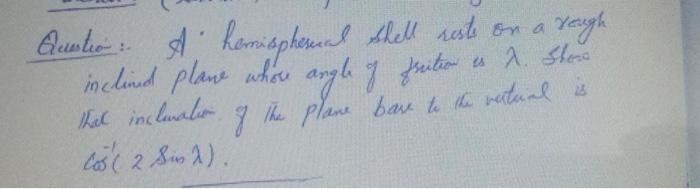 Question :. A hemispherical shell rests on a rough
inclined plane whose angle of friction is λ. Show
that inclination of the plane base to the vertical is
Cos⁻¹( 2 Sin λ).